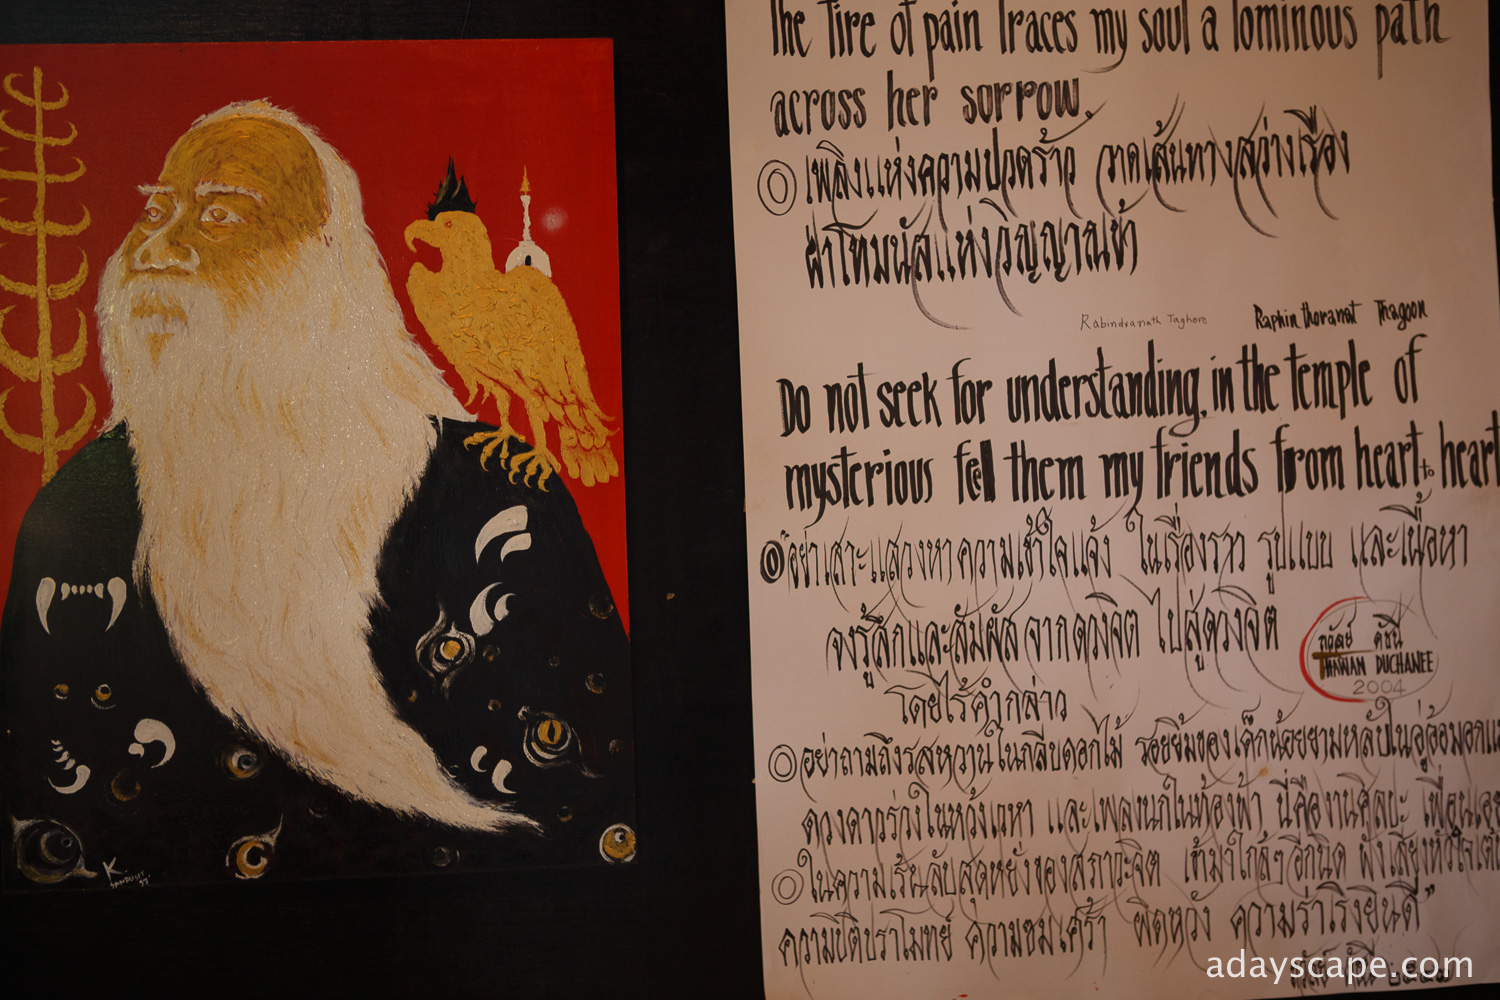 The fire of pain Traces my soul a lominous path
across her sorrow.
เพลิงแห่งความปวดร้าว วาดเส้นทางสว่างเรือง
ฝ่าโทมนัสแห่งวิญญาณเข้า
Rabindranath Taghore Raphin thoranat Thagoon
Do not seek for understanding, in the temple of
mysterious feel them my friends from heart to heart
"อย่าเสาะแสวงหาความเข้าใจแจ้ง ในเรื่องราว รูปแบบ และเนื้อหา
จงรู้สึกและสัมผัส จากดวงจิต ไปสู่ดวงจิต
ถวัลย์ ดัชนี
THAWAN DUCHANEE
2004
โดยไร้คำกล่าว
อย่าถามถึงรสหวานในกลีบดอกไม้ รอยยิ้มของเด็กน้อยยามหลับในอู่อ้อมอกแม่
ดวงดาวร่วงในห้วงเวหา และเพลงนกในท้องฟ้า นี่คืองานศิลปะ เพื่อนเอย
ในความเร้นลับสุดหยั่งของสภาวะจิต เข้ามาใกล้ๆ อีกนิด ฟังเสียงหัวใจเต้น
ความปิติปราโมทย์ ความขมเศร้า ผิดหวัง ความร่าเริงยินดี"
ถวัลย์ ดัชนี ๒๕๔๗
K.
SANDUSIT
57
adayscape.com